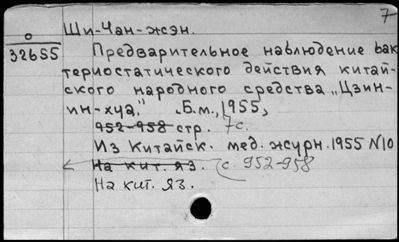 7
Ши-Чан-жэн.
0
32655
Предварительное наблюдение бак
териостатического действия китай-
ского народного средства „Цзин-
ин-хуа." Б.м., 1955,
952-958 стр. 7с.
Из Китайск. мед. журн. 1955 N10
На кит. яз. с. 952-958
На кит. яз.